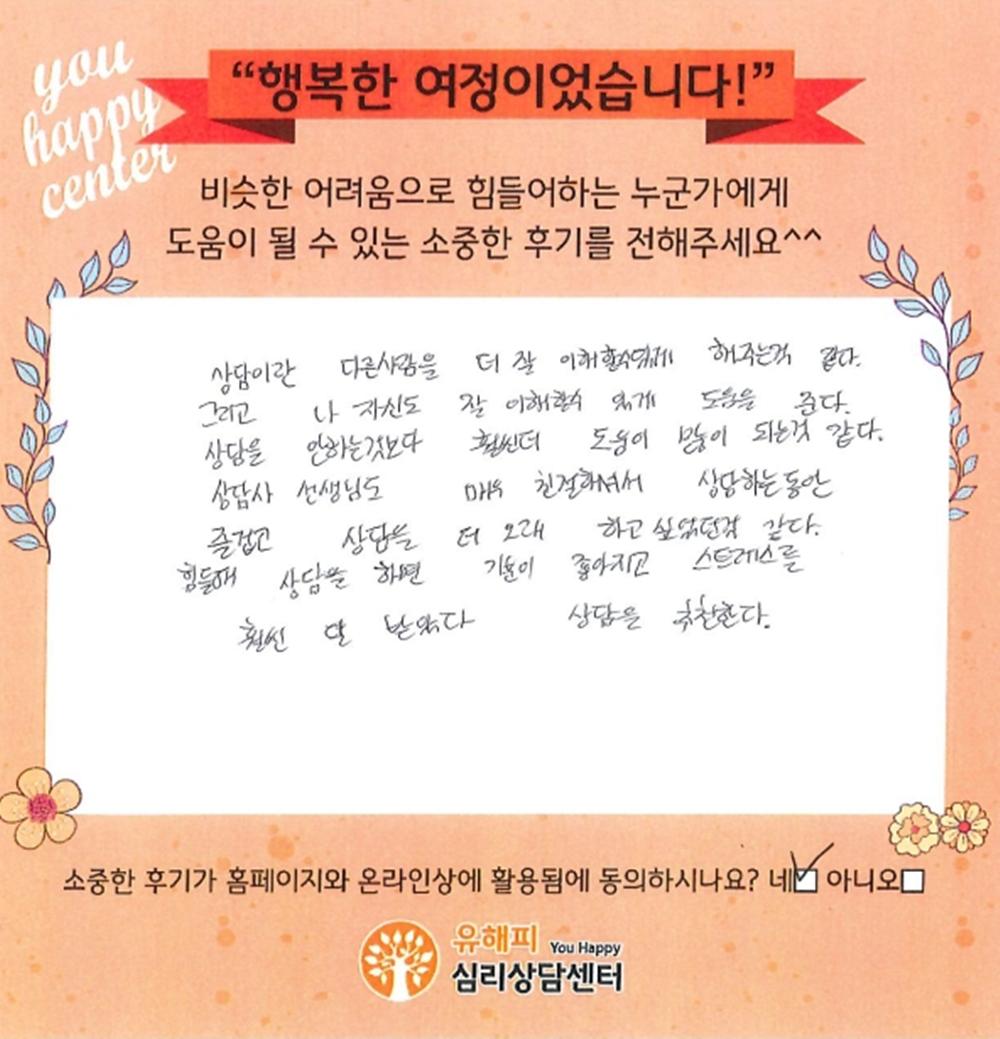 you
happy
center
“행복한 여정이었습니다!”
비슷한 어려움으로 힘들어하는 누군가에게
도움이 될 수 있는 소중한 후기를 전해주세요^^
상담이란 다른사람을 더 잘 이해할수있게 해주는것 같다.
그리고 나 자신도 잘 이해할수 있게 도움을 준다.
상담을 안하는것보다 훨씬더 도움이 많이 되는것 같다.
상담사 선생님도 매우 친절하셔서 상담하는동안
즐겁고 상담을 더 오래 하고싶었던것 같다.
힘들때 상담을 하면 기분이 좋아지고 스트레스를
훨씬 덜 받았다 상담을 추천한다.
소중한 후기가 홈페이지와 온라인상에 활용됨에 동의하시나요? 네☑ 아니오☐
유해피 You Happy
심리상담센터